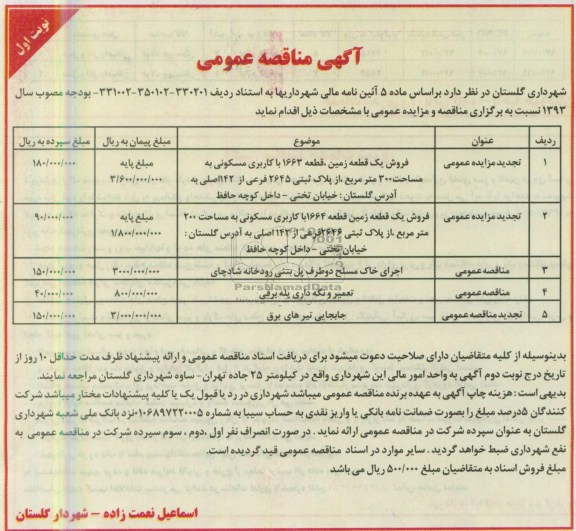 نوبت اول
آگهی مناقصه عمومی
شهرداری گلستان در نظر دارد براساس ماده ۵ آئین نامه مالی شهرداریها به استناد ردیف ۳۳۰۲۰۱-۳۵۰۱۰۲-۳۳۱۰۰۲- بودجه مصوب سال
۱۳۹۳ نسبت به برگزاری مناقصه و مزایده عمومی با مشخصات ذیل اقدام نماید
ردیف عنوان موضوع مبلغ پیمان به ریال مبلغ سپرده به ریال
۱ تجدید مزایده عمومی فروش یک قطعه زمین ،قطعه ۱۶۶۳ با کاربری مسکونی به مبلغ پایه ۱۸۰/۰۰۰/۰۰۰
مساحت۳۰۰ متر مربع ،از پلاک ثبتی ۲۶۴۵ فرعی از ۱۴۲اصلی به ۳/۶۰۰/۰۰۰/۰۰۰
آدرس گلستان : خیابان تختی - داخل کوچه حافظ
۲ تجدید مزایده عمومی فروش یک قطعه زمین قطعه ۱۶۶۴با کاربری مسکونی به مساحت ۲۰۰ مبلغ پایه ۹۰/۰۰۰/۰۰۰
متر مربع ،از پلاک ثبتی ۲۶۴۶فرعی از ۱۴۲اصلی به آدرس گلستان : ۱/۸۰۰/۰۰۰/۰۰۰
خیابان تختی - داخل کوچه حافظ
۳ مناقصه عمومی اجرای خاک مسلح دوطرف پل بتنی رودخانه شادچای ۳۰۰۰/۰۰۰/۰۰۰ ۱۵۰/۰۰۰/۰۰۰
۴ مناقصه عمومی تعمیر و نگه داری پله برقی ۸۰۰/۰۰۰/۰۰۰ ۴۰/۰۰۰/۰۰۰
۵ تجدید مناقصه عمومی جابجایی تیر های برق ۳/۰۰۰/۰۰۰/۰۰۰ ۱۵۰/۰۰۰/۰۰۰
ParsNamadData
بدینوسیله از کلیه متقاضیان دارای صلاحیت دعوت میشود برای دریافت اسناد مناقصه عمومی و ارائه پیشنهاد ظرف مدت حداقل ۱۰ روز از
تاریخ درج نوبت دوم آگهی به واحد امور مالی این شهرداری واقع در کیلومتر ۲۵ جاده تهران- ساوه شهرداری گلستان مراجعه نمایند.
بدیهی است : هزینه چاپ آگهی به عهده برنده مناقصه عمومی میباشد شهرداری در رد یا قبول یک یا کلیه پیشنهادات مختار میباشد شرکت
کنندگان ۵درصد مبلغ را بصورت ضمانت نامه بانکی یا واریز نقدی به حساب سیبا به شماره ۰۱۰۶۸۹۷۲۲۰۰۰۵نزد بانک ملی شعبه شهرداری
گلستان به عنوان سپرده شرکت در مناقصه عمومی ارائه نماید . در صورت انصراف نفر اول ،دوم ، سوم سپرده شرکت در مناقصه عمومی به
نفع شهرداری ضبط خواهد گردید . سایر موارد در اسناد مناقصه عمومی قید گردیده است.
مبلغ فروش اسناد به متقاضیان مبلغ ۵۰۰/۰۰۰ ریال می باشد
اسماعیل نعمت زاده - شهردار گلستان